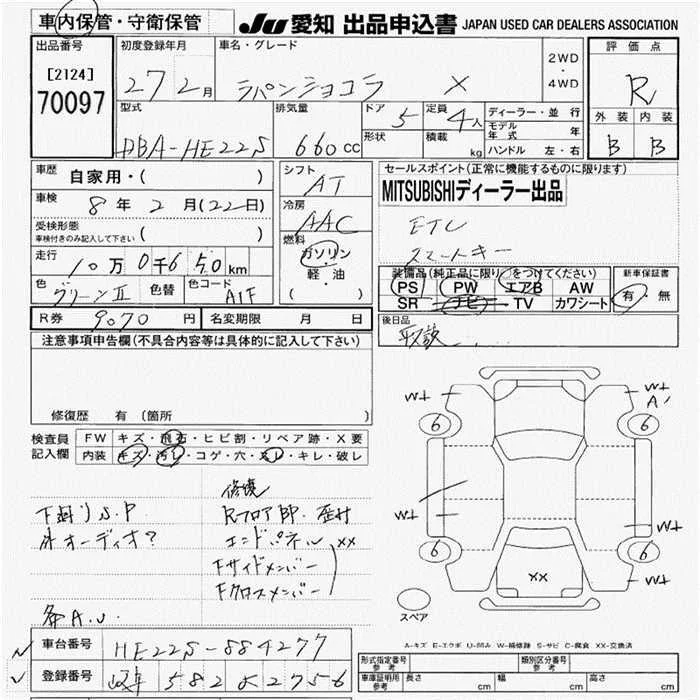 車内保管・守衛保管
JU 愛知 出品申込書 JAPAN USED CAR DEALERS ASSOCIATION
出品番号
[2124]
70097
初度登録年月
27 2月
車名・グレード
ラパンショコラ X
2WD
・
4WD
評価点
R
外装 内装
B B
型式
DBA-HE22S
排気量
660cc
ドア
5
形状
定員
4人
積載
kg
ディーラー・並行
モデル年式 年
ハンドル 左・右
車歴
自家用・( )
車検
8年2月(22日)
受検形態
車検付きのみ記入して下さい ( )
走行
10万0千650km
色
グリーンII
色替
色コード
A1F
シフト
AT
冷房
AAC
燃料
ガソリン
軽・油
( )
セールスポイント(正常に機能するものに限ります)
MITSUBISHIディーラー出品
ETC
スマートキー
装備品(純正品に限り○をつけてください)
PS PW エアB AW
SR ナビ TV カワシート
新車保証書
有・無
R券 9070円
名変期限 月 日
後日品
取説
注意事項申告欄(不具合内容等は具体的に記入して下さい)
修復歴 有(箇所 )
検査員
記入欄
FW キズ・飛石・ヒビ割・リペア跡・X要
内装 キズ・汚レ・コゲ・穴・スレ・キレ・破レ
下廻りS.P
オーディオ?
各A.U
修境
Rフロア即・歪付
エンドパネル XX
Fサイドメンバー
Fクロスメンバー
W+
W+
A'
6
6
W+
W+
6
6
XX
W+
スペア
A-キズ E-エクボ U-凹み W-補修跡 S-サビ C-腐食 XX-交換済
車台番号 HE22S-884277
登録番号 岐阜 582 え 2756
形式指定番号
参考
類別区分番号
参考
車庫証明用
参考
長さ cm
幅 cm
高さ cm